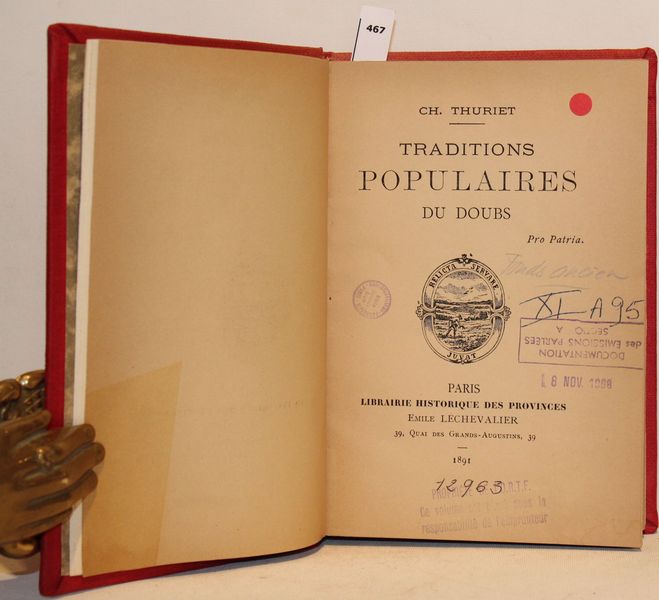 467
CH. THURIET
TRADITIONS
POPULAIRES
DU DOUBS
Pro Patria.
Fonds ancien
RELICTA SERVARE
JUVAT
XI A 95
DOCUMENTATION
SECTION A
des ÉMISSIONS PARLÉES
18 NOV. 1968
PARIS
LIBRAIRIE HISTORIQUE DES PROVINCES
EMILE LECHEVALIER
39, QUAI DES GRANDS-AUGUSTINS, 39
1891
12963
O.R.T.F.
Ce volume est sous la
responsabilité de l'emprunteur